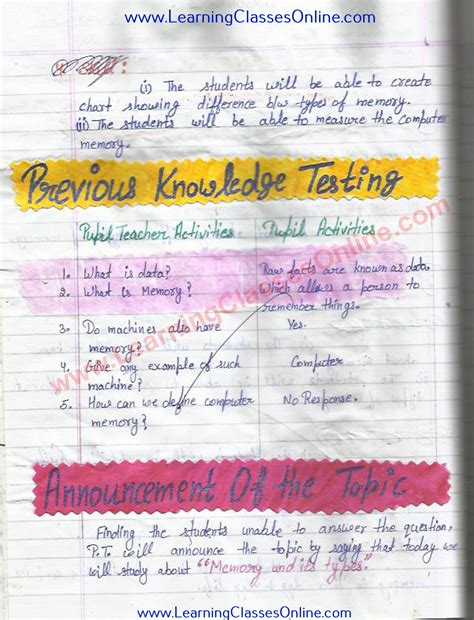 www.LearningClassesOnline.com
(i) The students will be able to create
chart showing difference b/w types of memory.
(ii) The students will be able to measure the computer
memory.
Previous Knowledge Testing
Pupil Teacher Activities Pupil Activities
1. What is data? Raw facts are known as data.
2. What Is Memory? Which allows a person to
remember things.
3. Do machines also have Yes.
memory?
4. Give any example of such Computer
machine?
5. How can we define computer No Response.
memory?
www.LearningClassesOnline.com
Announcement Of the Topic
Finding the students unable to answer the question,
P.T. will announce the topic by saying that today we
will study about "Memory and its types."
www.LearningClassesOnline.com